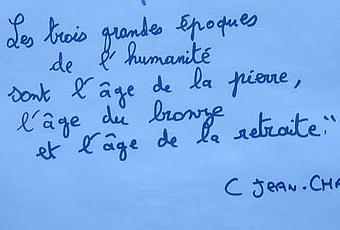 Les trois grandes époques
de l'humanité
sont l'âge de la pierre,
l'âge du bronze
et l'âge de la retraite."
C JEAN.CHA